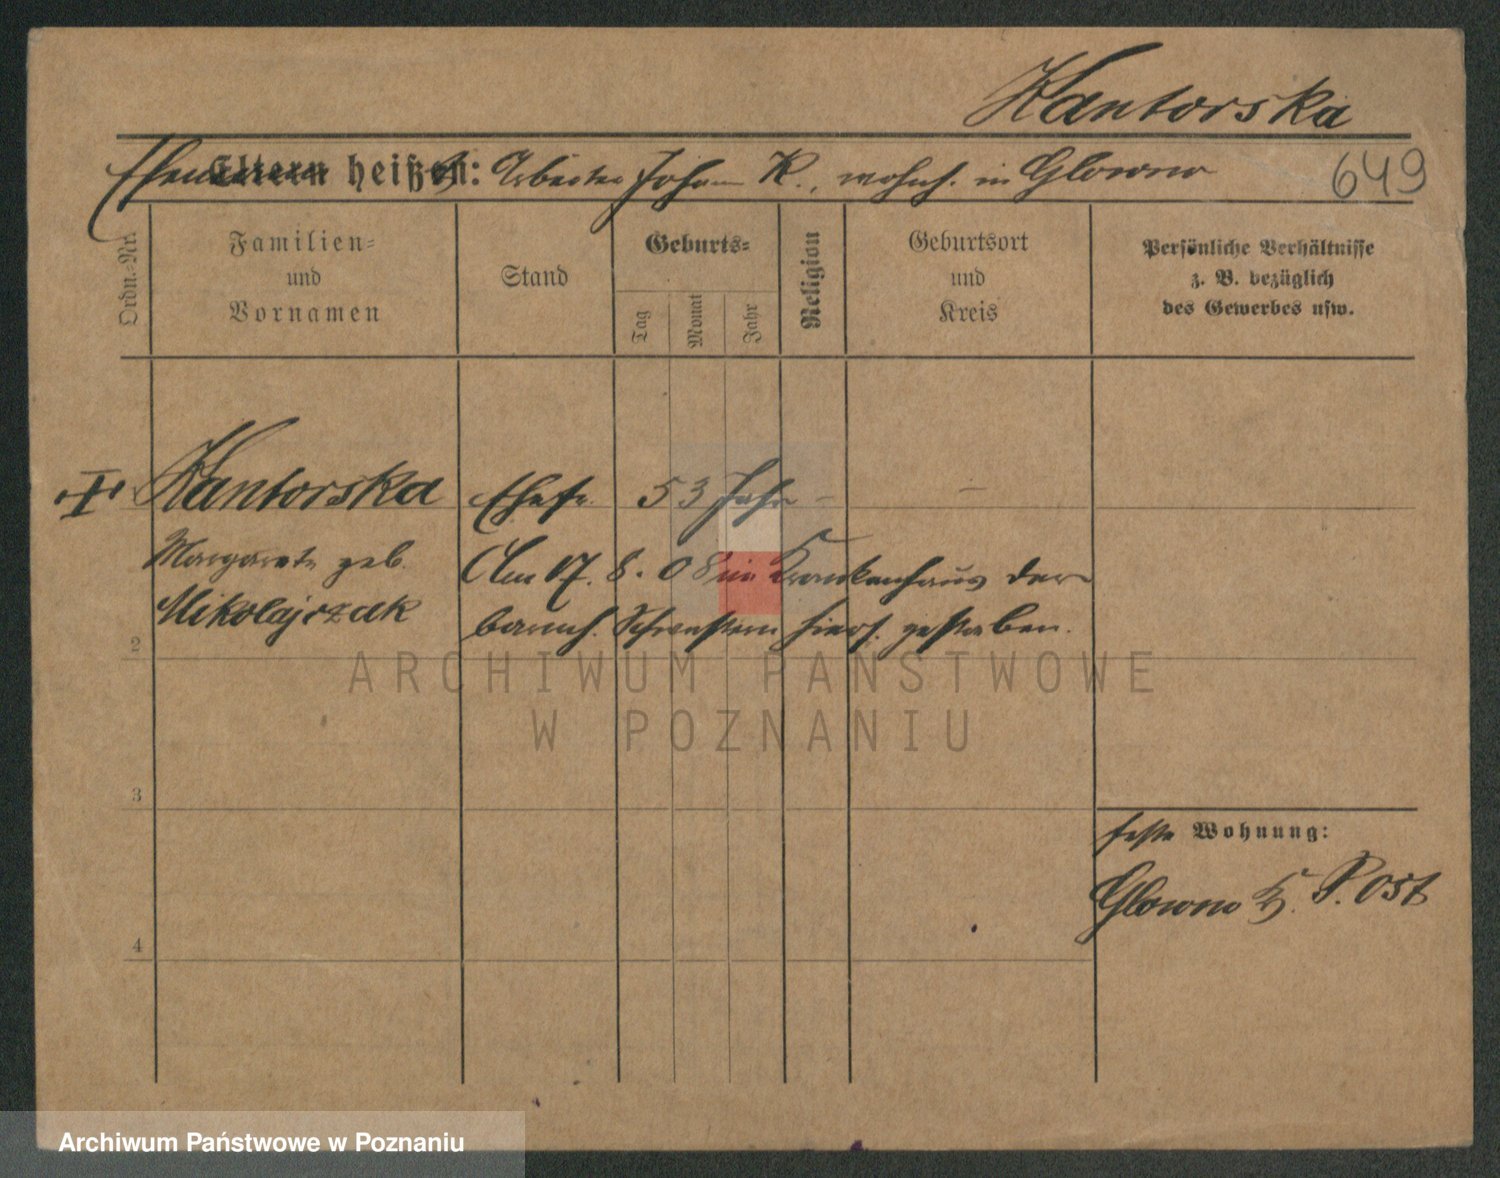 Kantorska
Ehemann heißt: Arbeiter Johann K., wohnh. in Glowno
649
Ordn.-Nr.
Familien-
und
Vornamen
Stand
Geburts-
Tag
Monat
Jahr
Religion
Geburtsort
und
Kreis
Persönliche Verhältnisse
z. B. bezüglich
des Gewerbes usw.
Kantorska Ehefr. 53 Jahr - -
Margarete geb. Am 17. 8. 08 im Krankenhaus der
Mikolajczak barmh. Schwestern hiers. gestorben.
2
ARCHIWUM PAŃSTWOWE
W POZNANIU
3
feste Wohnung:
Glowno Kr. P. Ost
4
Archiwum Państwowe w Poznaniu